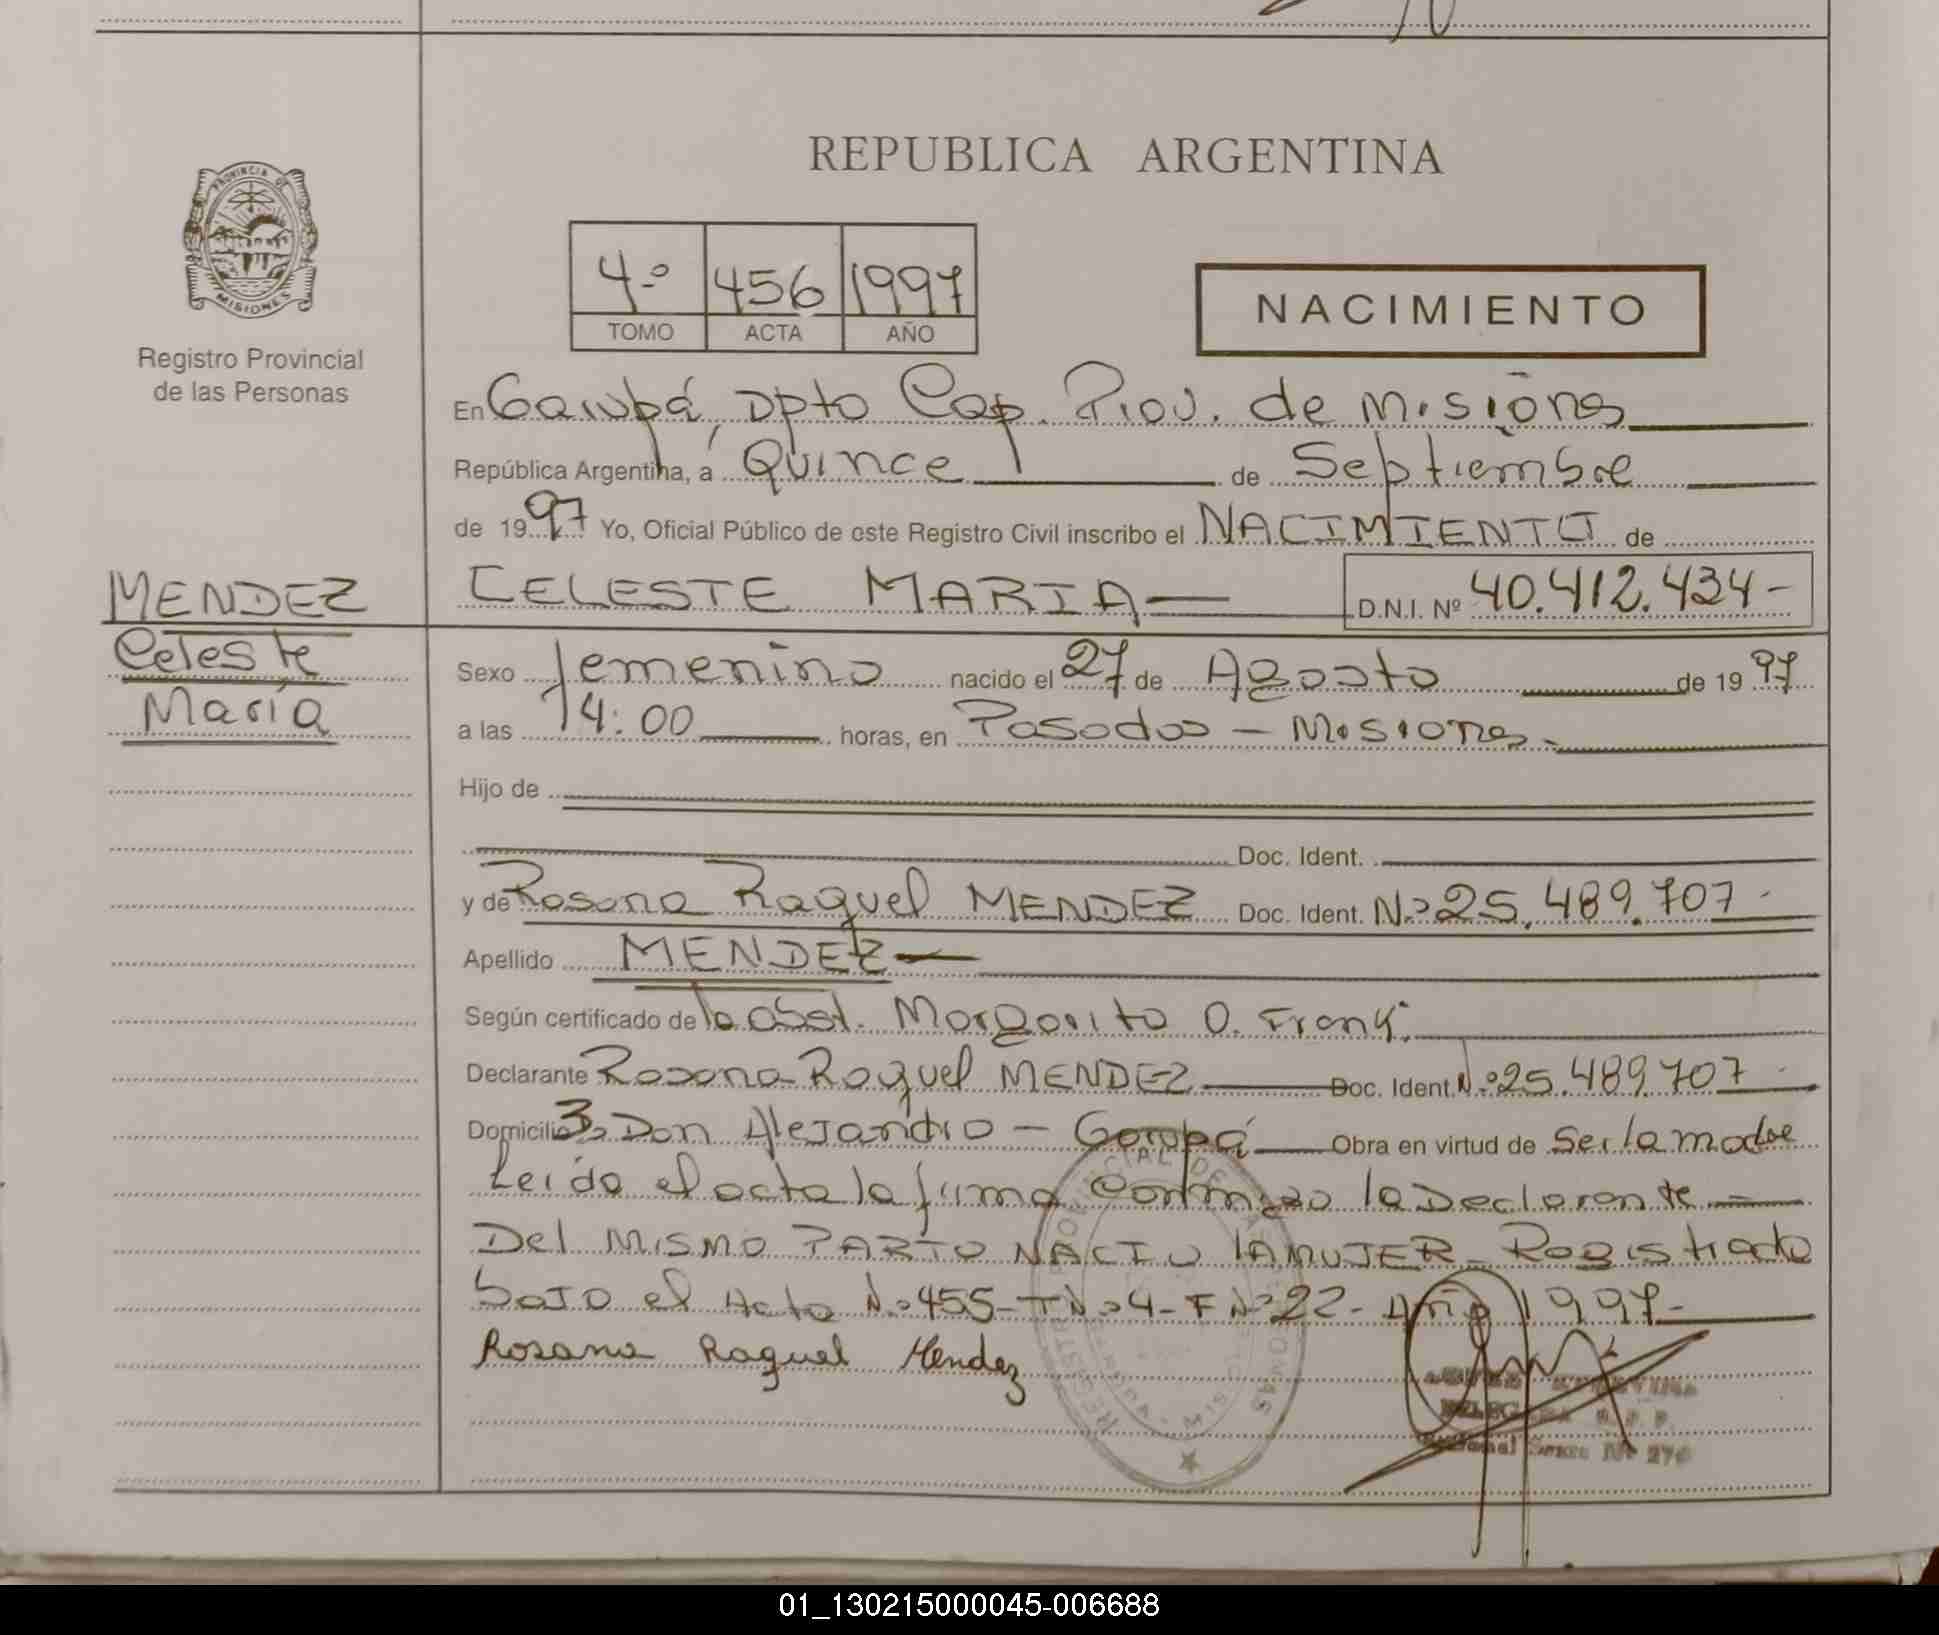 REPUBLICA ARGENTINA
PROVINCIA DE
MISIONES
Registro Provincial
de las Personas
4º 456 1997
TOMO ACTA AÑO
NACIMIENTO
En Garupá, Dpto Cap. Prov. de Misiones
República Argentina, a Quince de Septiembre
de 1997 Yo, Oficial Público de este Registro Civil inscribo el NACIMIENTO de
MENDEZ
Celeste
María
CELESTE MARIA D.N.I. Nº 40.412.434-
Sexo femenino nacido el 27 de Agosto de 1997
a las 14:00 horas, en Posadas - Misiones.
Hijo de
Doc. Ident.
y de Rosana Raquel MENDEZ Doc. Ident. Nº 25.489.707-
Apellido MENDEZ
Según certificado de la Obst. Margarita O. Frank.
Declarante Rosana Raquel MENDEZ Doc. Ident. Nº 25.489.707
Domicilio Bº Don Alejandro - Garupá Obra en virtud de Ser la madre
Leida el acta la firma conmigo la Declarante
Del MISMO PARTO NACIO LA MUJER - Registrada
bajo el Acta Nº 455 - T Nº 4 - F Nº 22 - Año 1997-
Rosana Raquel Mendez
REGISTRO PROVINCIAL DE LAS PERSONAS
01_130215000045-006688